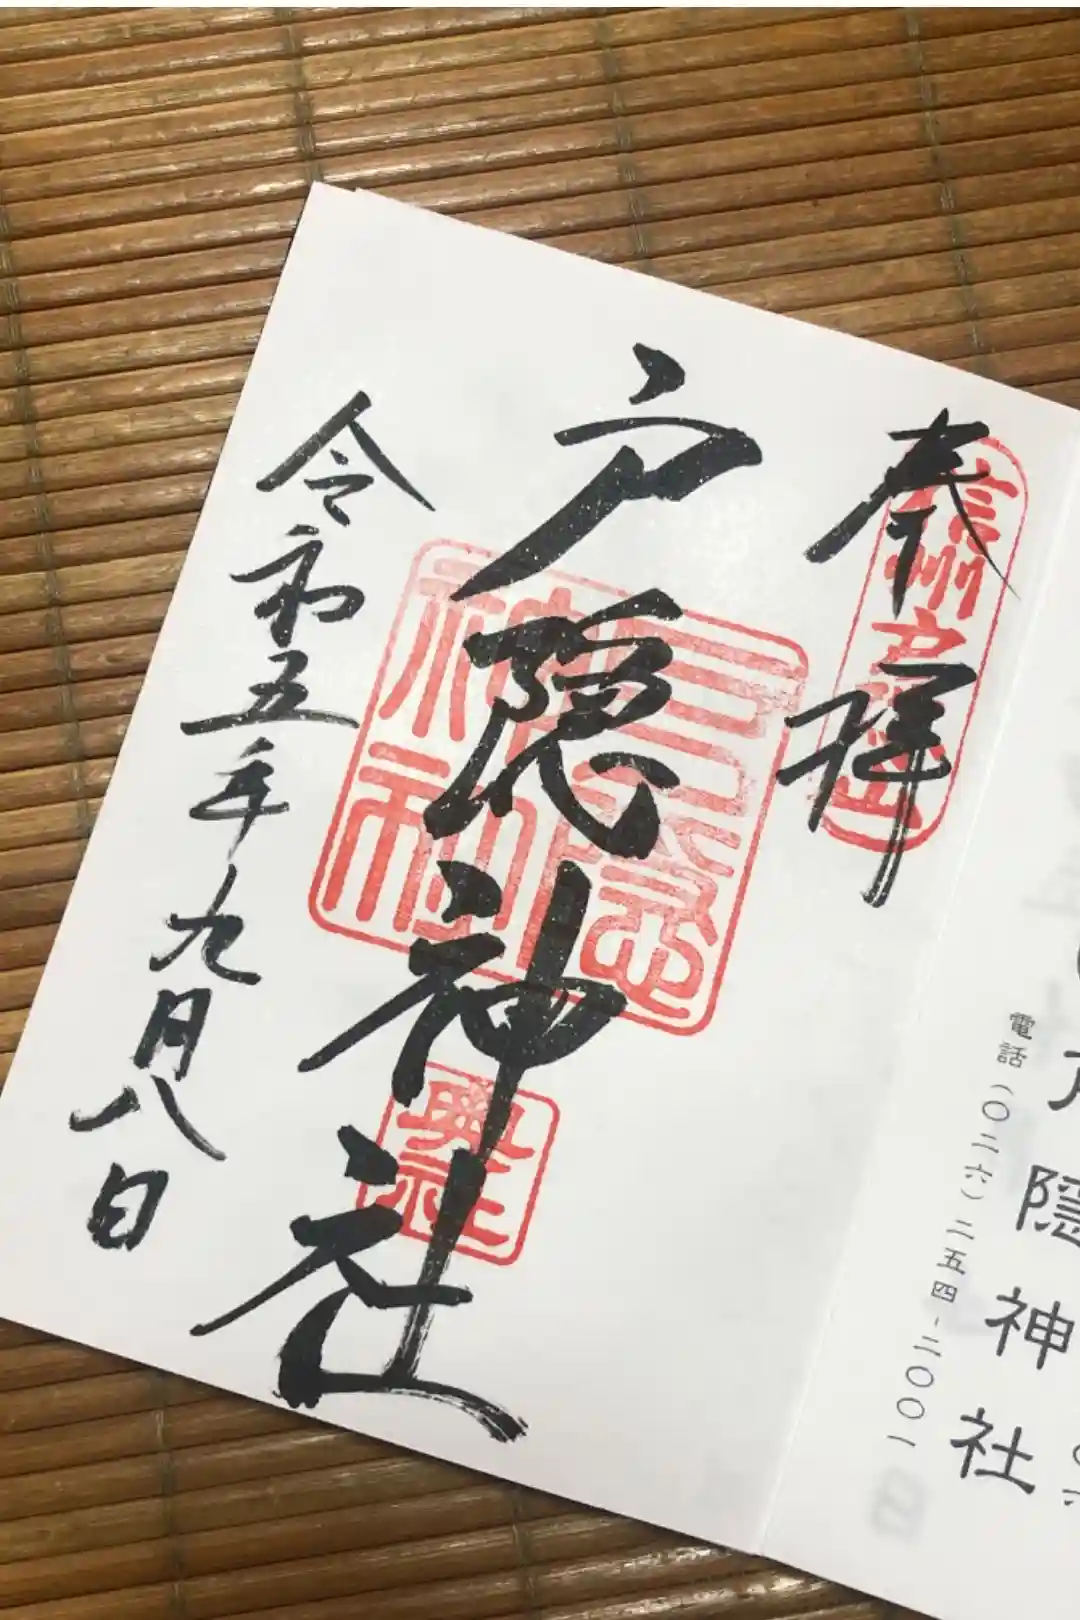 戸隠神社
電話(〇二六)二五四-二〇〇一
奉拝
信州戸隠山
戸隠神社
戸隠神社
奥社
令和五年九月八日